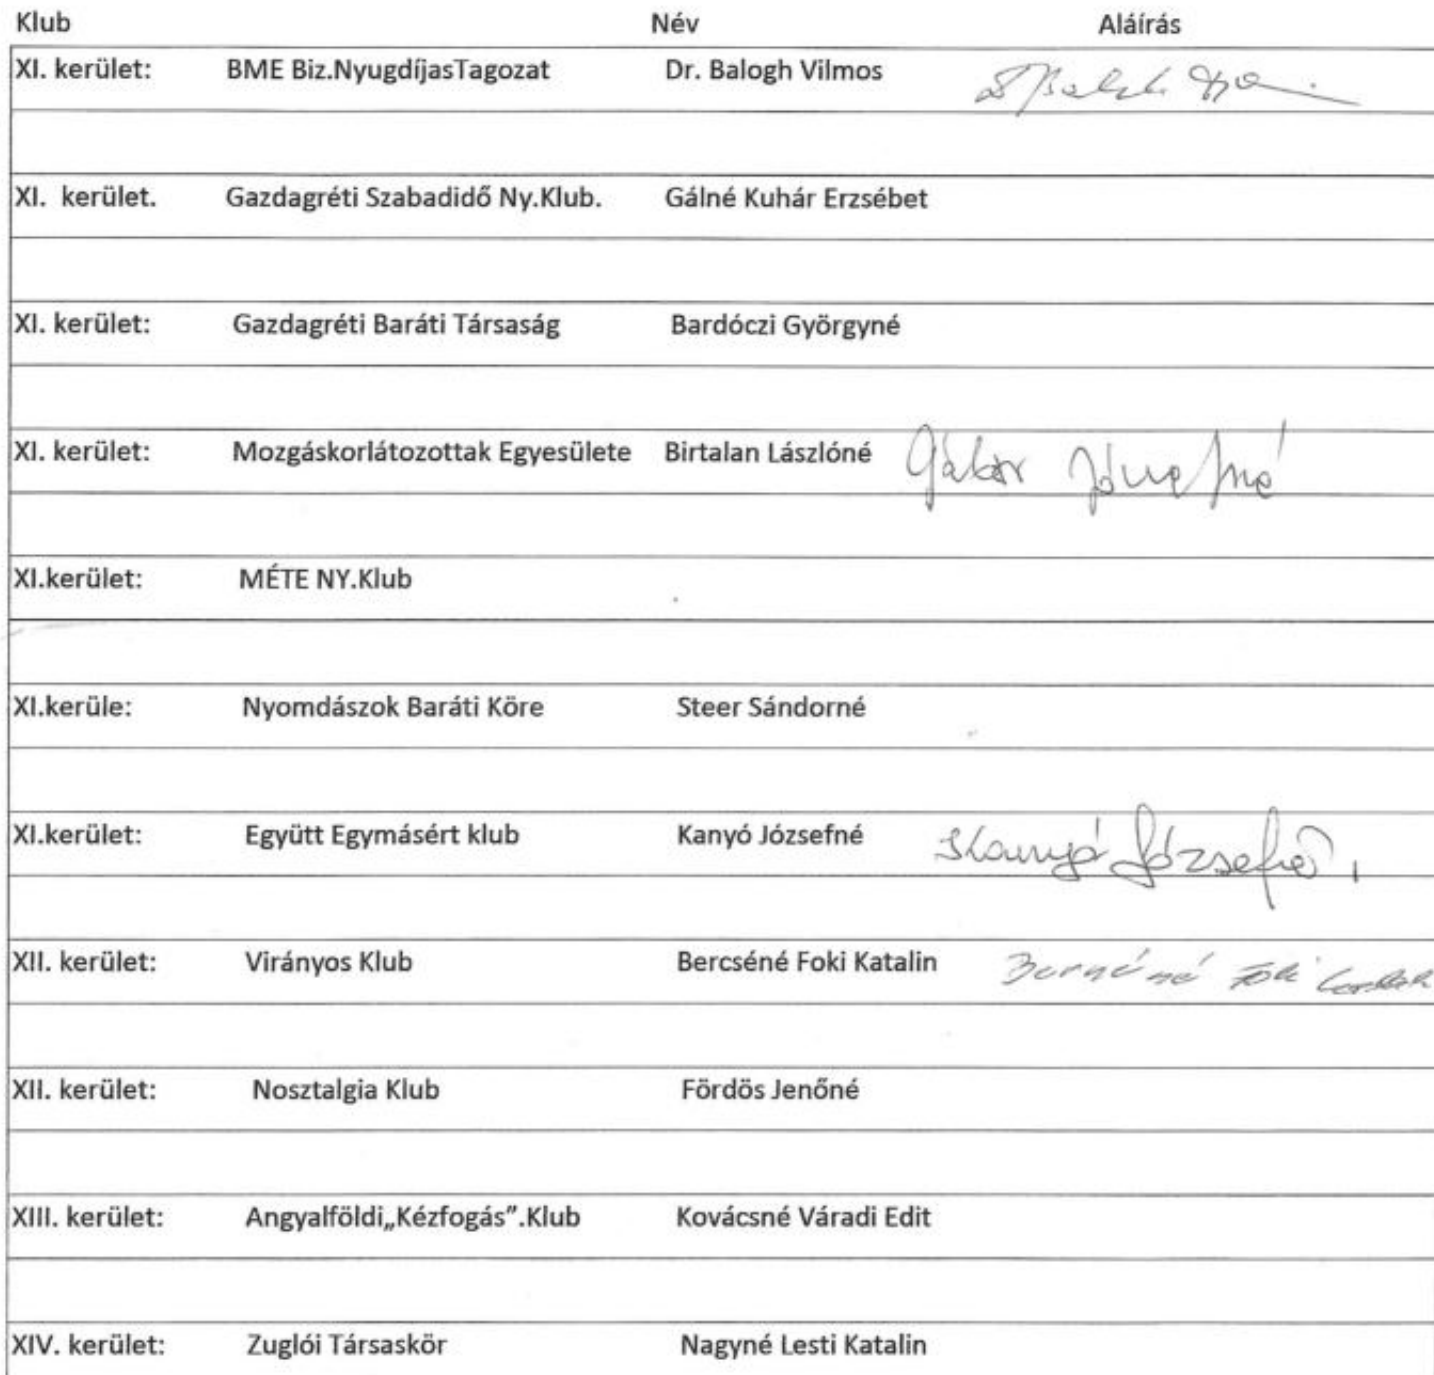 Klub Név Aláírás
XI. kerület: BME Biz.NyugdíjasTagozat Dr. Balogh Vilmos
XI. kerület. Gazdagréti Szabadidő Ny.Klub. Gálné Kuhár Erzsébet
XI. kerület: Gazdagréti Baráti Társaság Bardóczi Györgyné
XI. kerület: Mozgáskorlátozottak Egyesülete Birtalan Lászlóné Gábor Józsefné
XI.kerület: MÉTE NY.Klub
XI.kerüle: Nyomdászok Baráti Köre Steer Sándorné
XI.kerület: Együtt Egymásért klub Kanyó Józsefné Kanyó Józsefné
XII. kerület: Virányos Klub Bercséné Foki Katalin
XII. kerület: Nosztalgia Klub Fördös Jenőné
XIII. kerület: Angyalföldi„Kézfogás”.Klub Kovácsné Váradi Edit
XIV. kerület: Zuglói Társaskör Nagyné Lesti Katalin